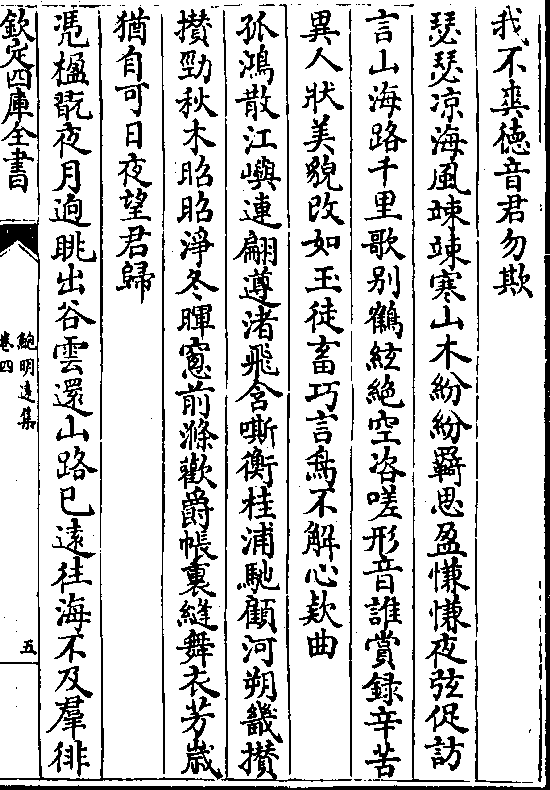 我不爽徳音君勿欺
瑟瑟凉海風竦竦寒山木紛紛羇思盈慊慊夜弦促訪
言山海路千里歌别鶴絃絶空咨嗟形音誰賞録辛苦
異人狀美貌改如玉徒畜巧言鳥不解心欵曲
孤鴻散江嶼連翩遵渚飛含嘶衡桂浦馳顧河朔畿攅
攅勁秋木昭昭淨冬暉窻前滌歡爵帳裏縫舞衣芳嵗
猶自可日夜望君歸
凴楹翫夜月逈眺出谷雲還山路已逺往海不及羣徘
欽定四庫全書
鮑明逺集
卷四
五